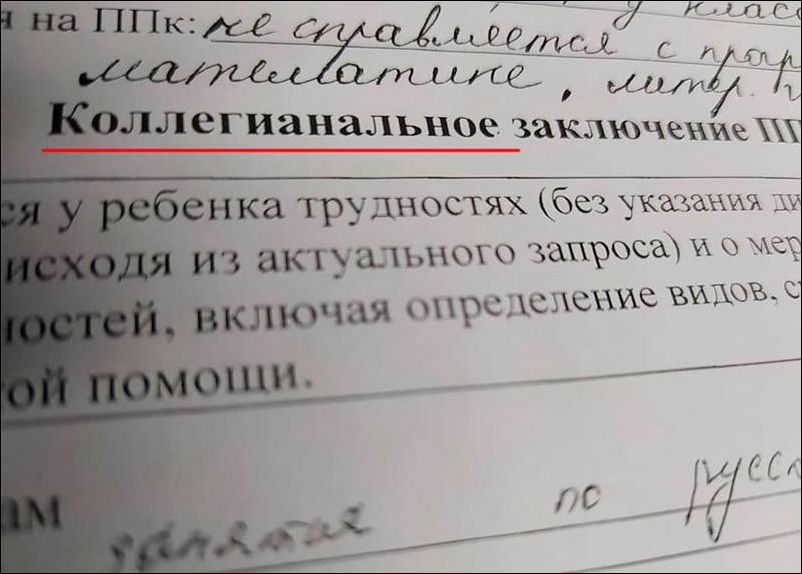 у класс
я на ППк: не справляется с прогр
математике, литер.
Коллегианальное заключение ПП
ся у ребенка трудностях (без указания ди
исходя из актуального запроса) и о мер
ностей, включая определение видов, с
ой помощи.
ам занятия по русс